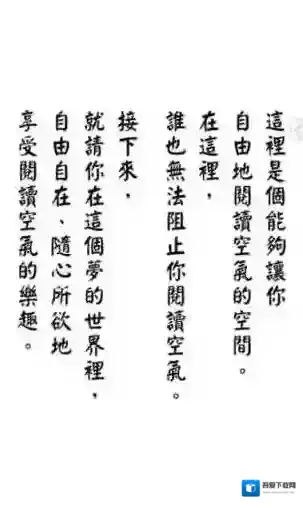 這裡是個能夠讓你
自由地閱讀空氣的空間。
在這裡，
誰也無法阻止你閱讀空氣。
接下來，
就請你在這個夢的世界裡，
自由自在、隨心所欲地
享受閱讀空氣的樂趣。
吾愛下载网